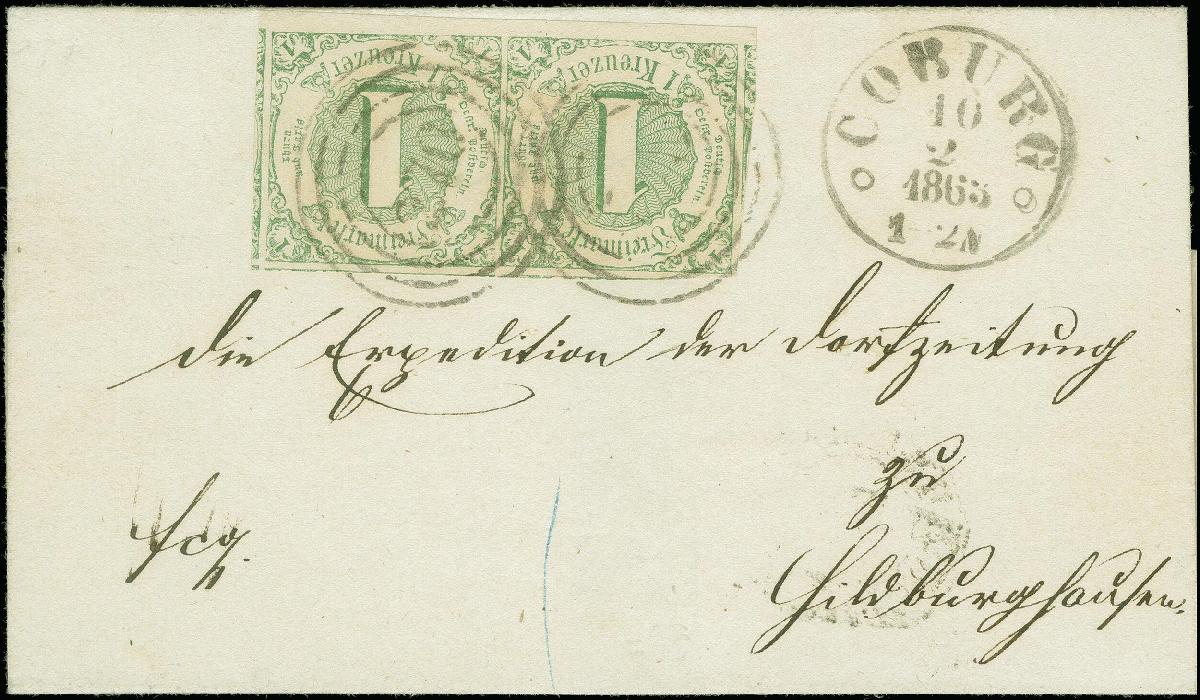 1 Kreuzer 1 Kreuzer
Thurn und Taxis 1 Deutsch Oestr. Postverein Thurn und Taxis 1 Deutsch Oestr. Postverein
Freimarke Freimarke
COBURG
10
2
1863
1-2N
die Expedition der Dorfzeitung
zu
Hildburghausen.